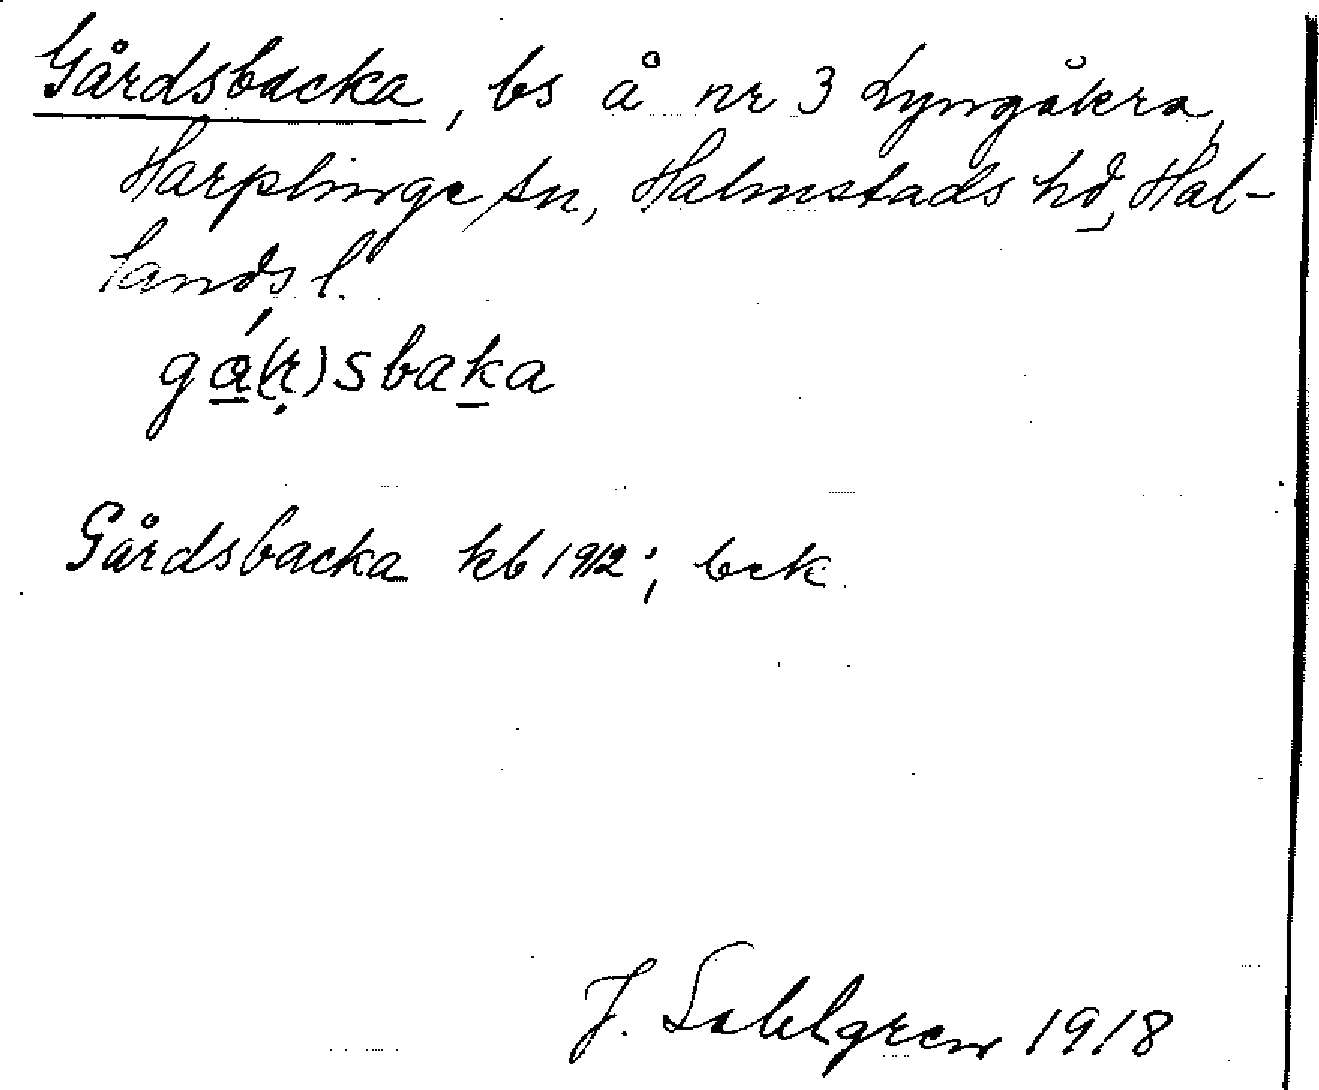 Gårdsbacka, bs å nr 3 Lyngåkra,
Harplinge sn, Halmstads hd, Hal-
lands l.
gá(r)sbaka
Gårdsbacka kb 1912; bek
J. Sahlgren 1918